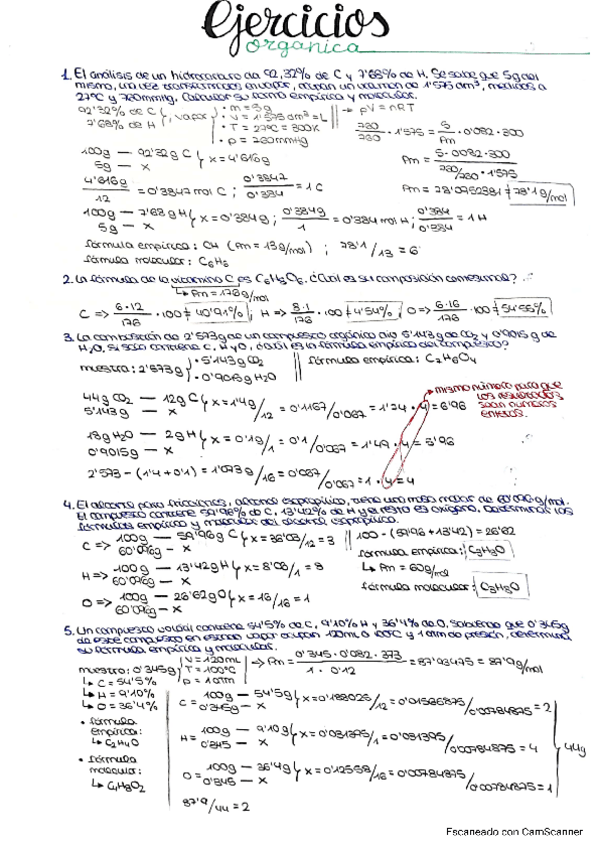 Ejercicios
orgánica
1. El análisis de un hidrocarburo da 92,32% de C y 7'68% de H. Se sabe que 5g del
mismo, una vez transformados en vapor, ocupan un volumen de 1'575 dm³, medidos a
27ºC y 760mmHg. Calcular su fórmula empírica y molecular.
92'32% de C
7'68% de H
, vapor
· m = 5g
· V = 1'575 dm³ = L
· T = 27ºC = 300K
· p = 760mmHg
→ pV = nRT
760/760 · 1'575 = 5/Pm · 0'082 · 300
Pm = 5 · 0'082 · 300 / 760/760 · 1'575
Pm = 78'0952381 = 78'1g/mol
100g — 92'32g C
5g — x
x = 4'616g
4'616g/12 = 0'3847 mol C ; 0'3847/0'384 = 1 C
100g — 7'68g H
5g — x
x = 0'384g ; 0'384g/1 = 0'384 mol H ; 0'384/0'384 = 1 H
fórmula empírica : CH (Pm = 13g/mol) ; 78'1/13 = 6
fórmula molecular : C₆H₆
2. La fórmula de la vitamina C es C₆H₈O₆. ¿Cuál es su composición centesimal?
↳ Pm = 176g/mol
C => 6·12/176 · 100 = 40'91% ; H => 8·1/176 · 100 = 4'54% ; O => 6·16/176 · 100 = 54'55%
3. La combustión de 2'573g de un compuesto orgánico dio 5'143g de CO₂ y 0'9015g de
H₂O, si solo contiene C, H y O, ¿cuál es la fórmula empírica del compuesto?
muestra : 2'573g
· 5'143g CO₂
· 0'9015g H₂O
fórmula empírica : C₇H₆O₄
mismo número para que
los resultados
sean números
enteros.
44g CO₂ — 12g C
5'143g — x
x = 1'4g/12 = 0'1167/0'067 = 1'74 · 4 = 6'96
18g H₂O — 2g H
0'9015g — x
x = 0'1g/1 = 0'1/0'067 = 1'49 · 4 = 5'96
2'573 - (1'4 + 0'1) = 1'073g/16 = 0'067/0'067 = 1 · 4 = 4
4. El alcohol para fricciones, alcohol isopropílico, tiene una masa molar de 60'096g/mol.
El compuesto contiene 59'96% de C, 13'42% de H y el resto es oxígeno. Determinar las
fórmulas empírica y molecular del alcohol isopropílico.
C => 100g — 59'96g C
60'096g — x
x = 36'03/12 = 3
100 - (59'96 + 13'42) = 26'62
fórmula empírica : C₃H₈O
↳ Pm = 60g/mol
fórmula molecular : C₃H₈O
H => 100g — 13'42g H
60'096g — x
x = 8'06/1 = 8
O => 100g — 26'62g O
60'096g — x
x = 16/16 = 1
5. Un compuesto volátil contiene 54'5% de C, 9'10% H y 36'4% de O. Sabiendo que 0'345g
de este compuesto en estado vapor ocupan 120mL a 100ºC y 1 atm de presión, determina
su fórmula empírica y molecular.
muestra : 0'345g
↳ C = 54'5%
↳ H = 9'10%
↳ O = 36'4%
V = 120mL
T = 100ºC
p = 1atm
→ Pm = 0'345 · 0'082 · 373 / 1 · 0'12 = 87'93475 = 87'9g/mol
C = 100g — 54'5g
0'345g — x
x = 0'188025/12 = 0'01566875/0'00784875 = 2
H = 100g — 9'10g
0'345 — x
x = 0'031395/1 = 0'031395/0'00784875 = 4
O = 100g — 36'4g
0'345 — x
x = 0'12558/16 = 0'00784875/0'00784875 = 1
44g
· fórmula
empírica :
↳ C₂H₄O
· fórmula
molecular :
↳ C₄H₈O₂
87'9/44 = 2
Escaneado con CamScanner